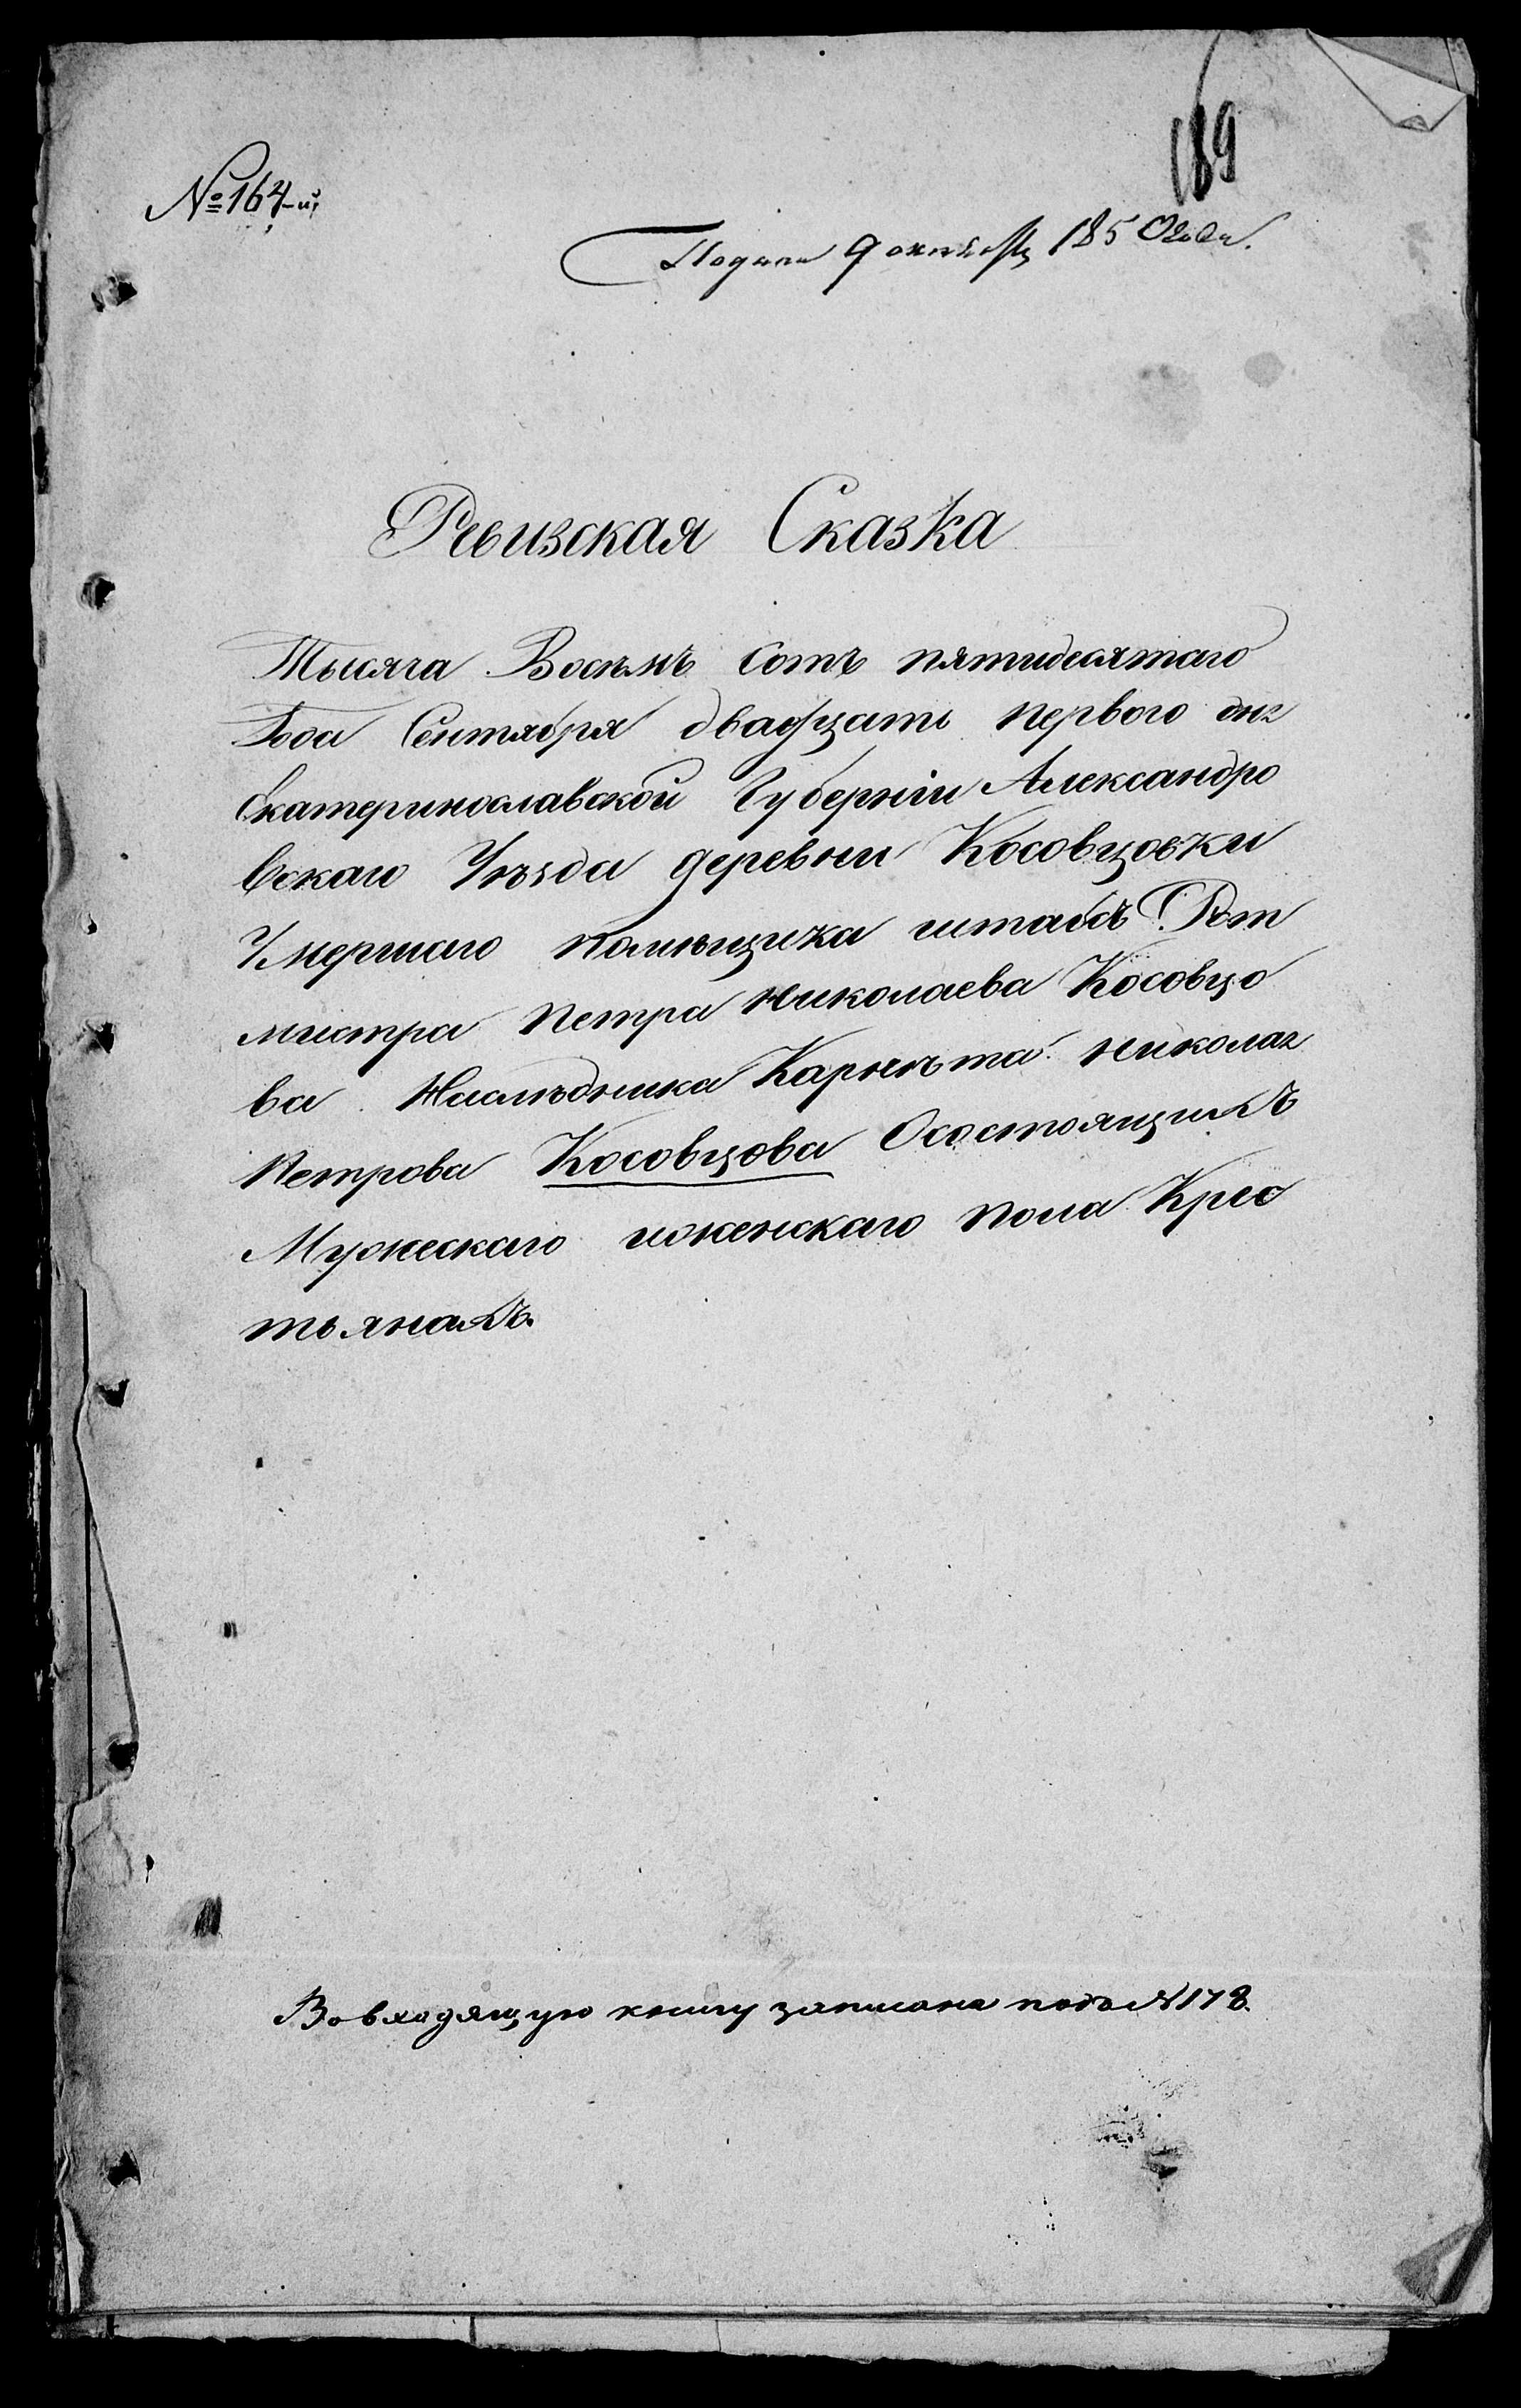 189
№164-й
Подана 9 октября 1850 года.
Ревизская Сказка
Тысяча Восемъ Сотъ пятидесятаго
Года Сентября двадцать первого дня
Екатеринославской Губернiи Александро
вскаго Уѣзда деревни Косовцовки
Умершаго помѣщика штабъ Рот
мистра Петра Николаева Косовцо
ва Наслѣдника Карнѣта Николая
Петрова Косовцова Осостоящихъ
Мужескаго иженскаго пола Крес
тьянахъ.
Вовходящую книгу записана подъ №178.